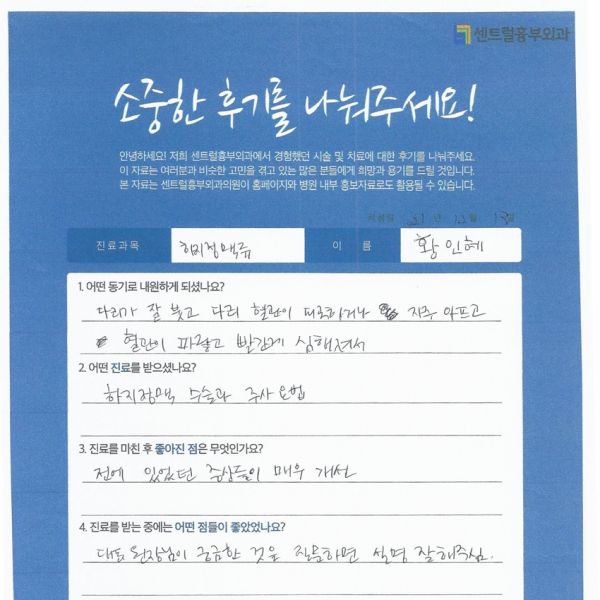 센트럴흉부외과
소중한 후기를 나눠주세요!
안녕하세요! 저희 센트럴흉부외과에서 경험했던 시술 및 치료에 대한 후기를 나눠주세요.
이 자료는 여러분과 비슷한 고민을 겪고 있는 많은 분들에게 희망과 용기를 드릴 것입니다.
본 자료는 센트럴흉부외과의원이 홈페이지와 병원 내부 홍보자료로도 활용될 수 있습니다.
작성일 21 년 12 월 13일
진료과목 하지정맥류 이 름 황인혜
1. 어떤 동기로 내원하게 되셨나요?
다리가 잘 붓고 다리 혈관이 자주 아프고
혈관이 파랗고 빨간게 심해져서
2. 어떤 진료를 받으셨나요?
하지정맥 수술과 주사요법
3. 진료를 마친 후 좋아진 점은 무엇인가요?
전에 있었던 증상들이 매우 개선
4. 진료를 받는 중에는 어떤 점들이 좋았었나요?
대표원장님이 궁금한 것을 질문하면 설명 잘해주심.